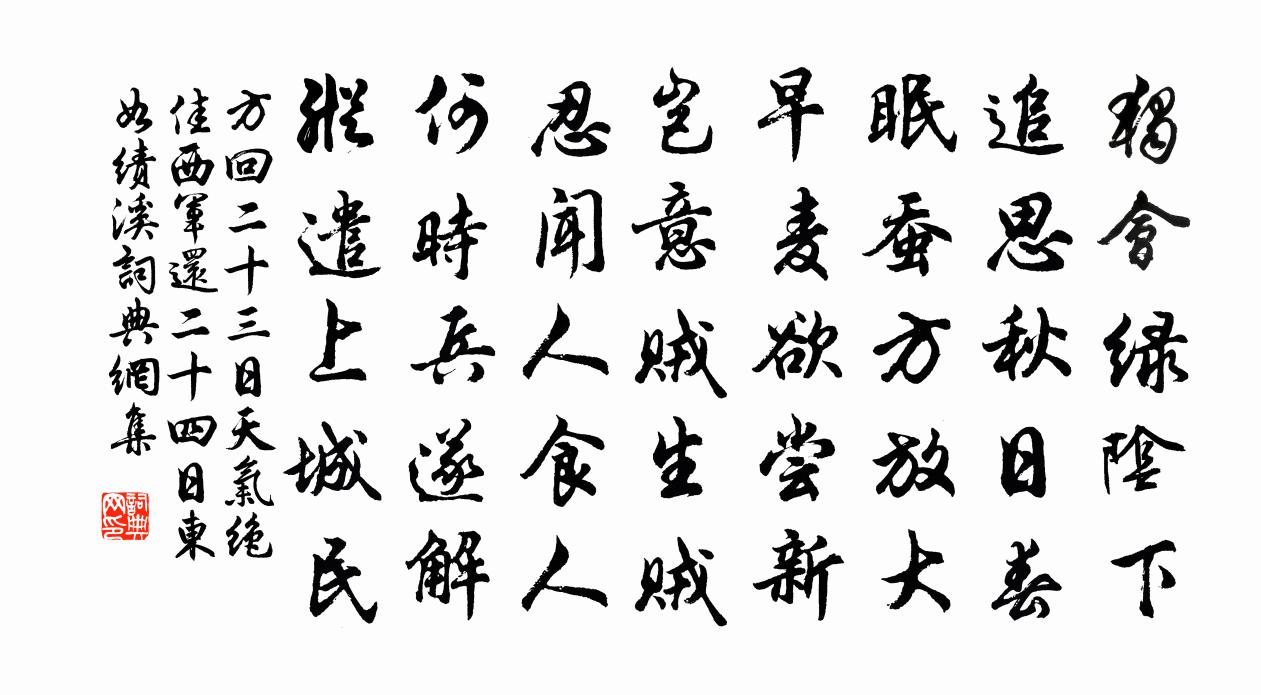 獨會緑陰下
追思秋日春
眠蚕方放大
早麦欲尝新
岂意贼生贼
忍闻人食人
何時兵遂解
縱遣上城民
方回二十三日天氣绝
佳西軍還二十四日東
如績溪詞典網集
詞典网印